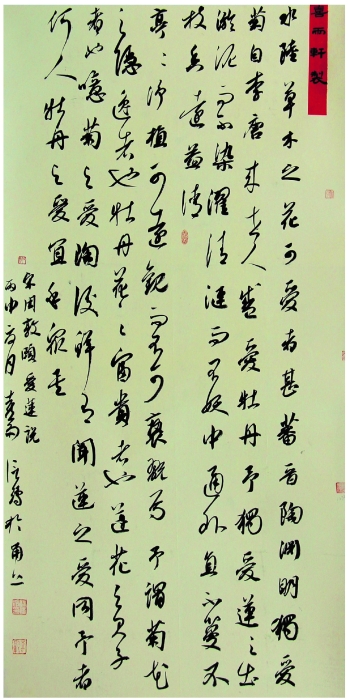 水陸草木之花可愛者甚蕃晉陶淵明獨愛
菊自李唐来世人盛愛牡丹予獨愛蓮之出
淤泥而不染濯清漣而不妖中通外直不蔓不
枝香遠益清
亭亭净植可遠觀而不可褻翫焉予謂菊花
之隱逸者也牡丹花之富貴者也蓮花之君子
者也噫菊之愛陶後鮮有聞蓮之愛同予者
何人牡丹之愛宜乎眾矣
宋周敦頤愛蓮說
丙申 月 於甬上